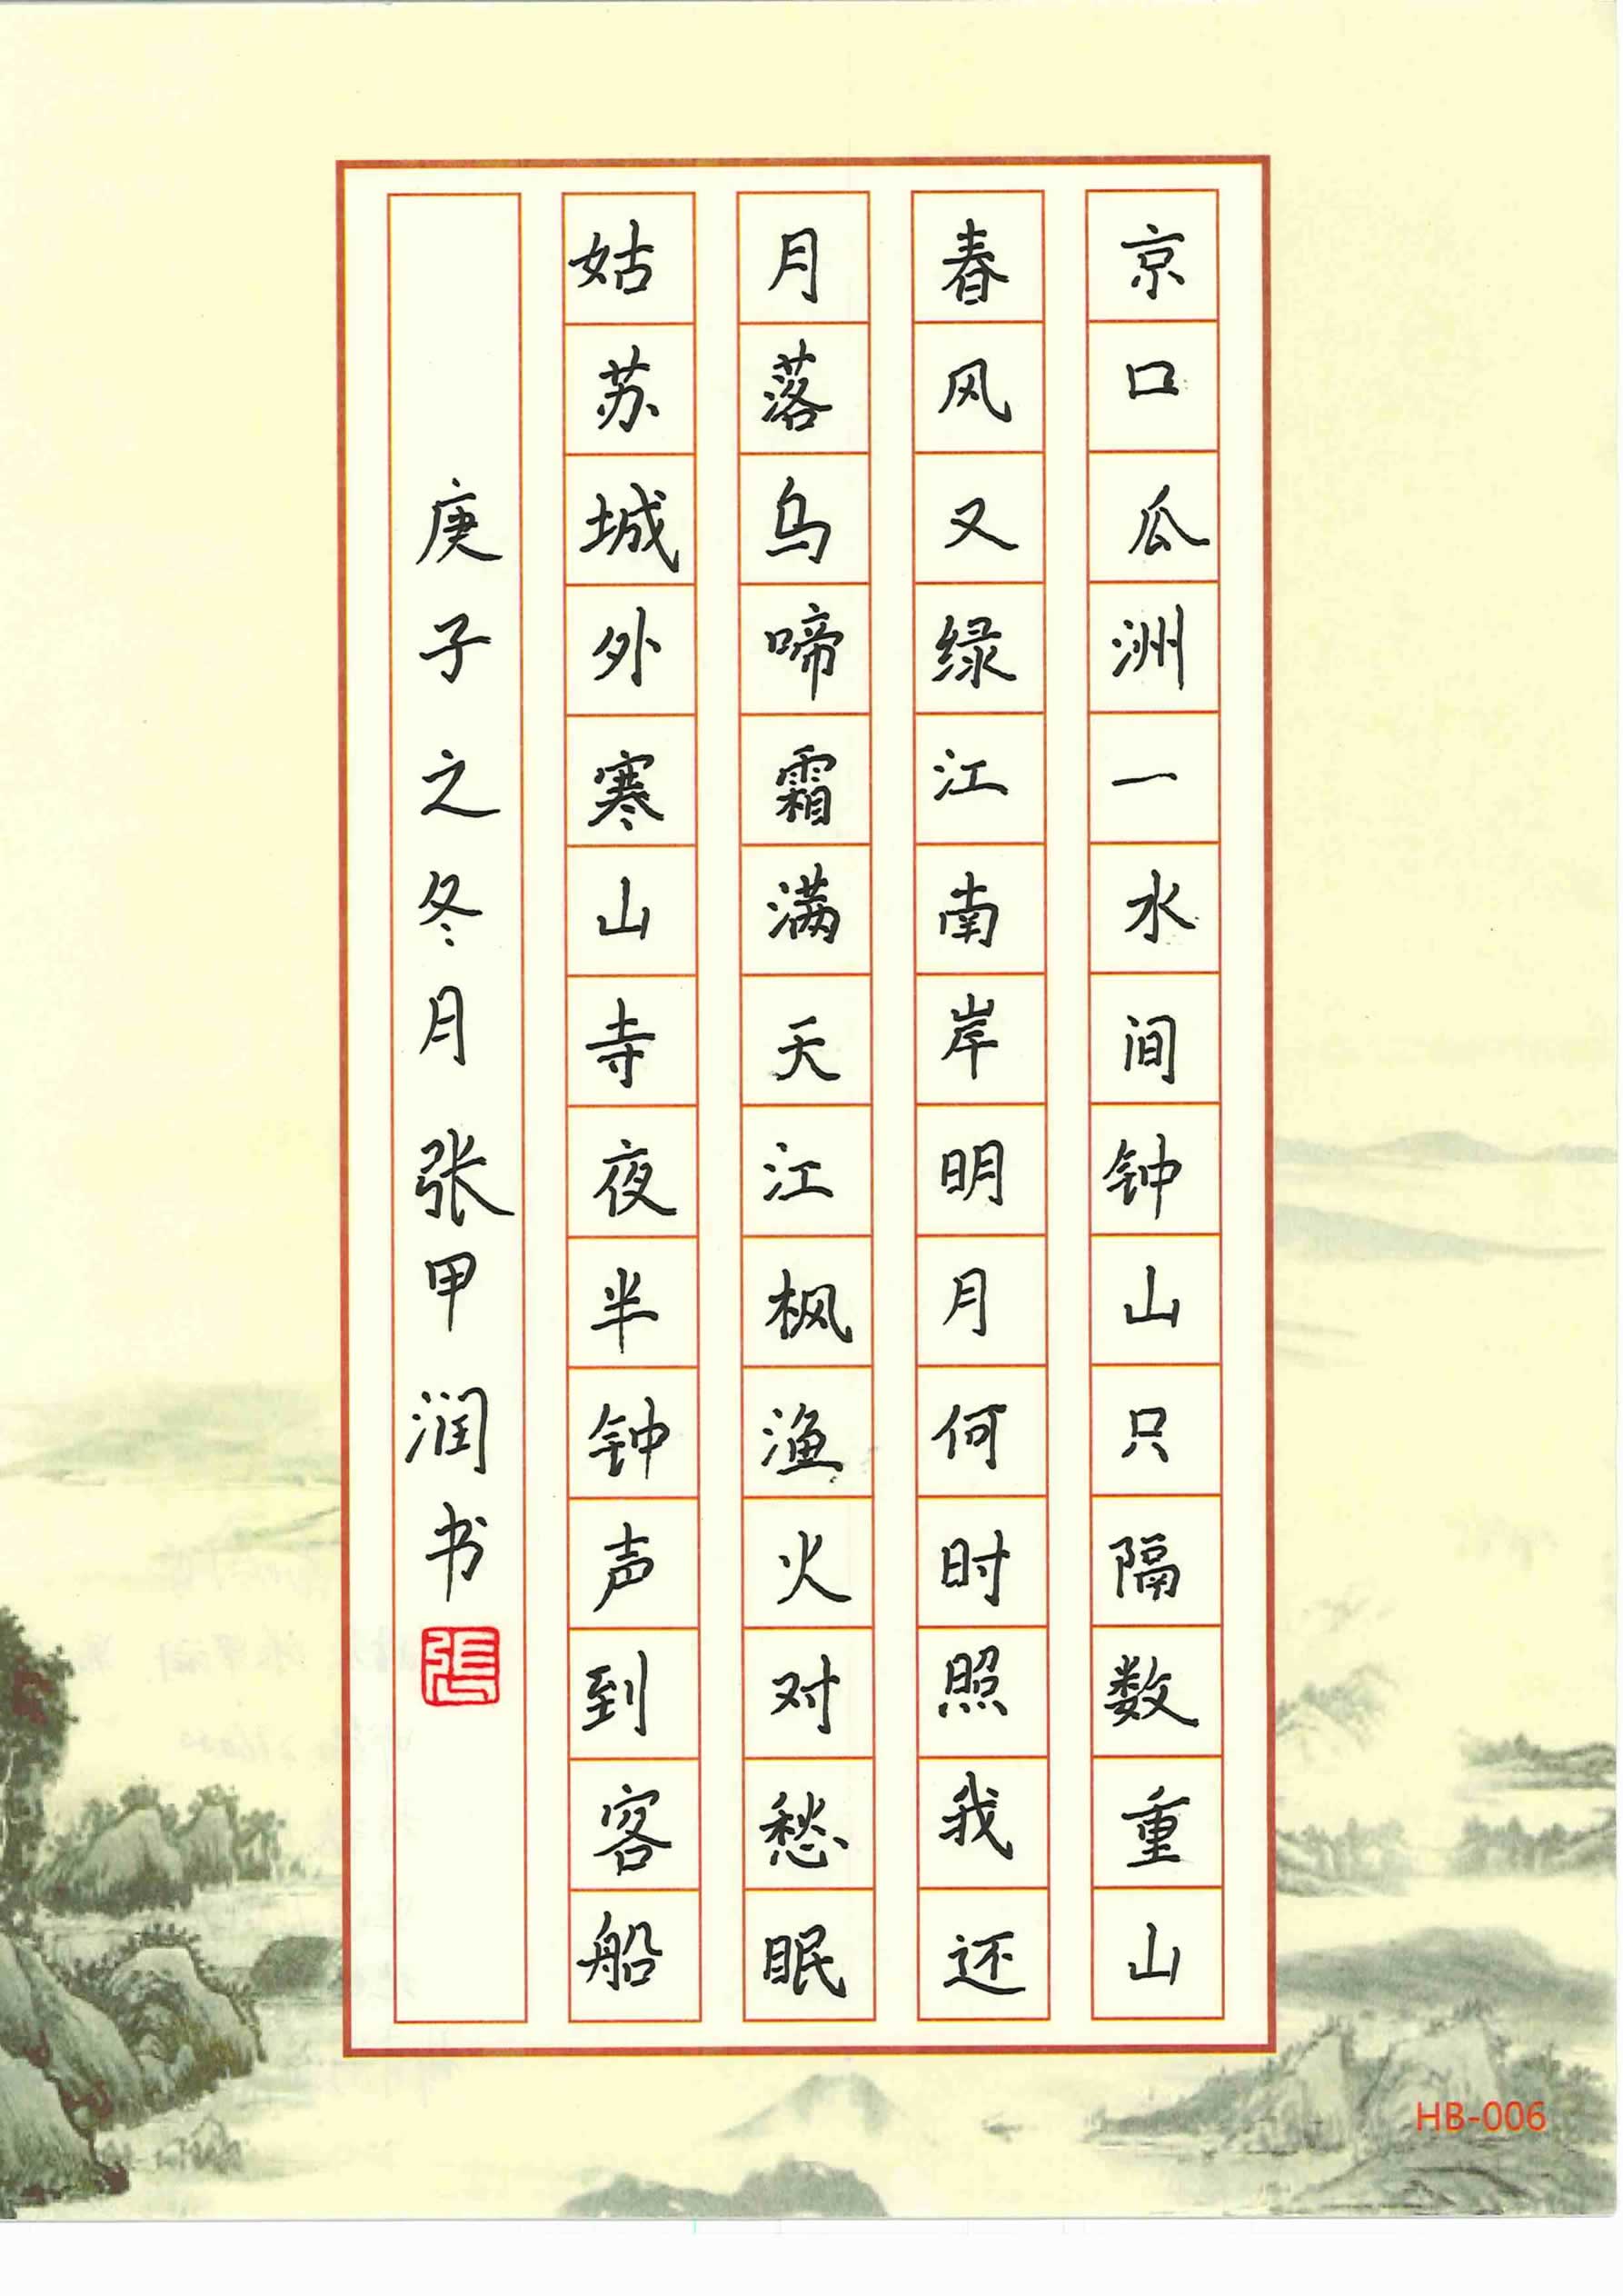 京口瓜洲一水间钟山只隔数重山
春风又绿江南岸明月何时照我还
月落乌啼霜满天江枫渔火对愁眠
姑苏城外寒山寺夜半钟声到客船
庚子之冬月张甲润书
張
HB-006